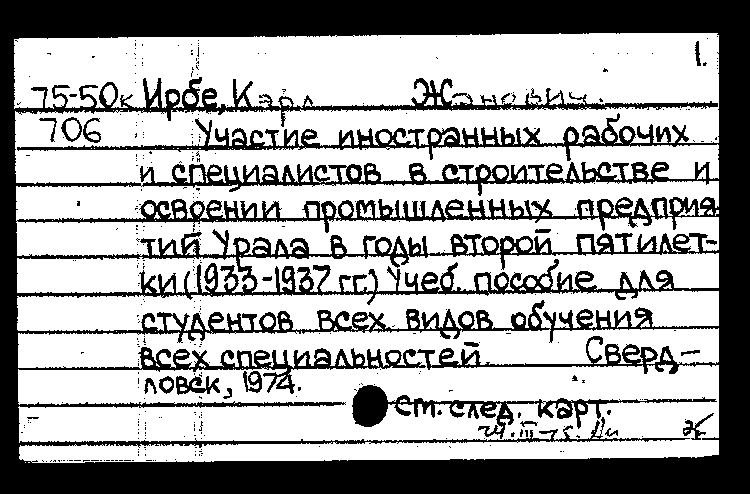 1.
75-50к Ирбе, Карл Жанович.
706 Участие иностранных рабочих
и специалистов в строительстве и
освоении промышленных предприя-
тий Урала в годы второй пятилет-
ки (1933-1937 гг.) Учеб. пособие для
студентов всех видов обучения
всех специальностей. Сверд-
ловск, 1974.
см. след. карт.
24.III-75.